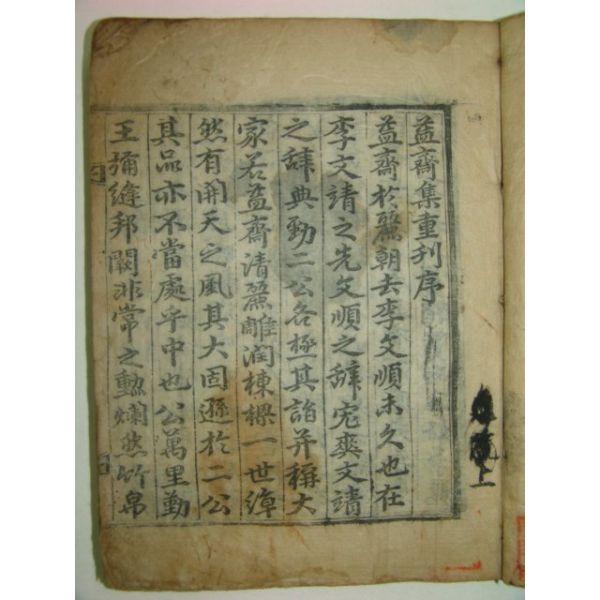 益齋集重刋序
益齋於麗朝去李文順未久也在
李文靖之先文順之辭宏爽文靖
之辭典勁二公各極其詣并稱大
家若益齋清麗雕潤棟樑一世綽
然有開天之風其大固遜於二公
其品亦不當處乎中也公萬里勤
王彌縫邦闕非常之勳爛然竹帛
上